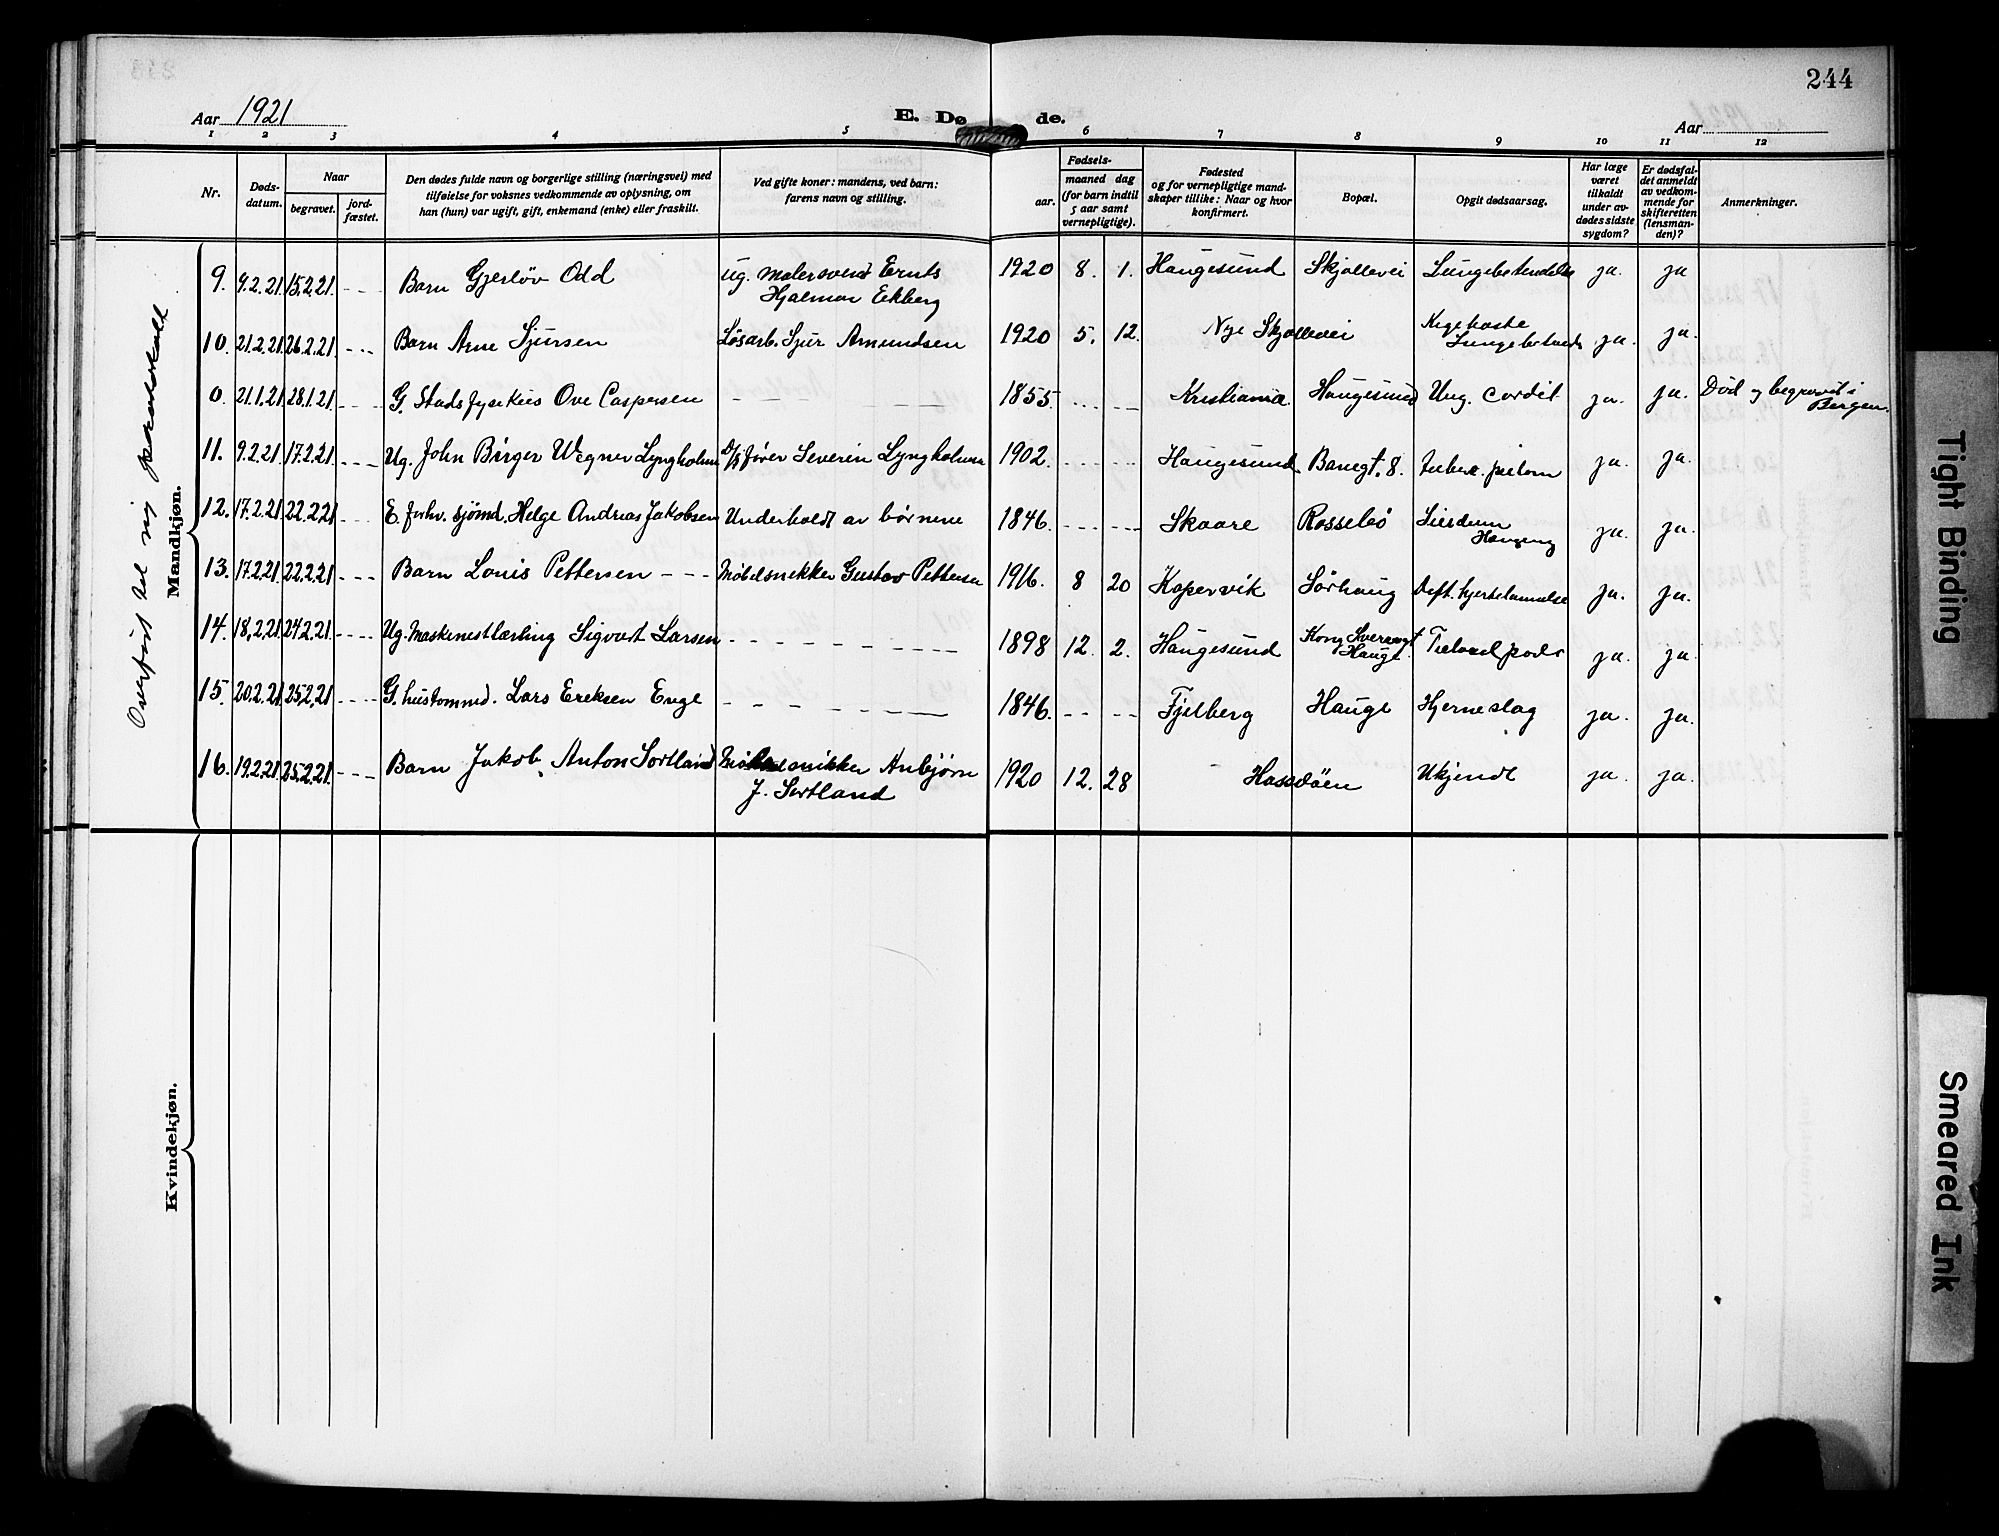 244
Aar 1921
E. Dø de.
Aar
1 2 3 4 5 6 7 8 9 10 11 12
Nr.
Døds-
datum.
Naar
begravet.
jord-
fæstet.
Den dødes fulde navn og borgerlige stilling (næringsvei) med
tilføielse for voksnes vedkommende av oplysning, om
han (hun) var ugift, gift, enkemand (enke) eller fraskilt.
Ved gifte koner: mandens, ved barn:
farens navn og stilling.
Fødsels-
aar.
maaned dag
(for barn indtil
5 aar samt
vernepligtige).
Fødested
og for vernepligtige mand-
skaper tillike: Naar og hvor
konfirmert.
Bopæl.
Opgit dødsaarsag.
Har læge
været
tilkaldt
under av-
dødes sidste
sygdom?
Er dødsfal-
det anmeldt
av vedkom-
mende for
skifteretten
(lensman-
den)?
Anmerkninger.
Overført til ny protokoll
Mandkjøn.
9. 9.2.21 15.2.21 - - - Barn Gjerløv Odd ug. malersvend Ernts 1920 8. 1. Haugesund Skjollevei Lungebetændelse ja. ja
Hjalmar Ekberg
10. 21.2.21 26.2.21 - - - Barn Arne Sjursen Løsarb. Sjur Amundsen 1920 5. 12. Nye Skjollevei Kighoste ja. ja.
0. 21.1.21 28.1.21 - - - G. Stadsfysikus Ove Caspersen - - - 1855. Kristiania Haugesund Ung. cordit ja. ja. Død og begravet i
Bergen.
11. 9.2.21 17.2.21 - - - Ug. John Birger Wegner Lyngholm D/S fører Severin Lyngholm 1902. Haugesund Banegt. 8. ja. ja.
12. 17.2.21 22.2.21 - - - E. forhv. sjømd. Helge Andreas Jakobsen Underholdt av børnene 1846. Skaare Rossebø ja. ja.
13. 17.2.21 22.2.21 - - - Barn Louis Pettersen - - - Møbelsnekker Gustav Pettersen 1916. 8 20 Kopervik Sørhaug Dift. hjertelammelse ja. ja.
14. 18.2.21 24.2.21 - - - Ug. Maskinestlærling Sigvart Larsen - - - 1898 12. 2. Haugesund Kong Sverresgt ja. ja.
Hauge.
15. 20.2.21 25.2.21 - - - G. hustømmd. Lars Eriksen Enge - - - 1846. Fjelberg Hauge Hjerneslag ja. ja.
16. 19.2.21 25.2.21 - - - Barn Jakob Anton Sortland Møbelsnikker Anbjørn 1920 12. 28 Hassdøen Ukjendt ja. ja.
J. Sortland
Kvindekjøn.
Tight Binding
Smeared Ink